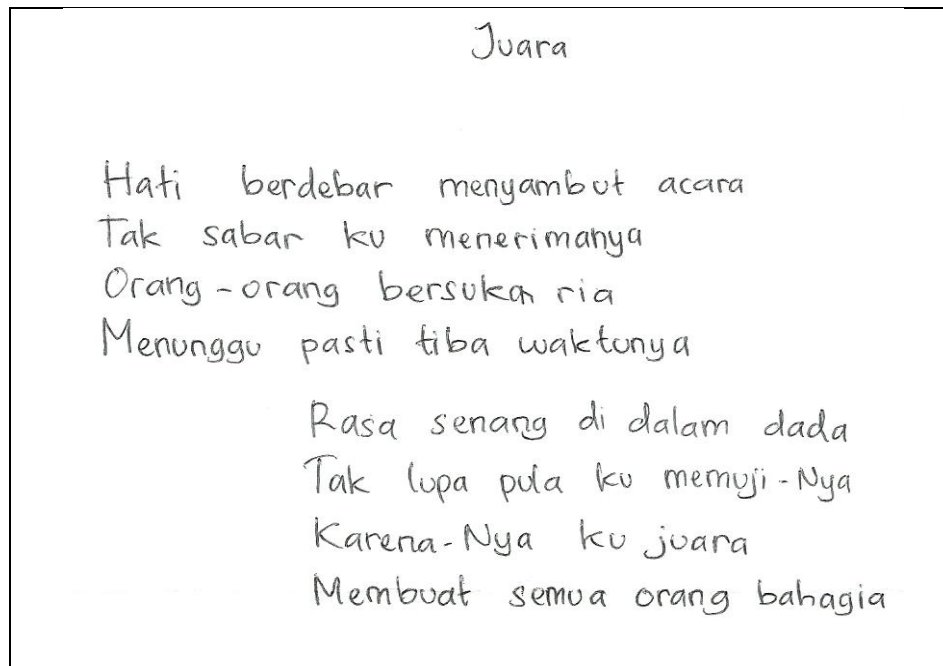 Juara
Hati berdebar menyambut acara
Tak sabar ku menerimanya
Orang-orang bersuka ria
Menunggu pasti tiba waktunya
Rasa senang di dalam dada
Tak lupa pula ku memuji-Nya
Karena-Nya ku juara
Membuat semua orang bahagia